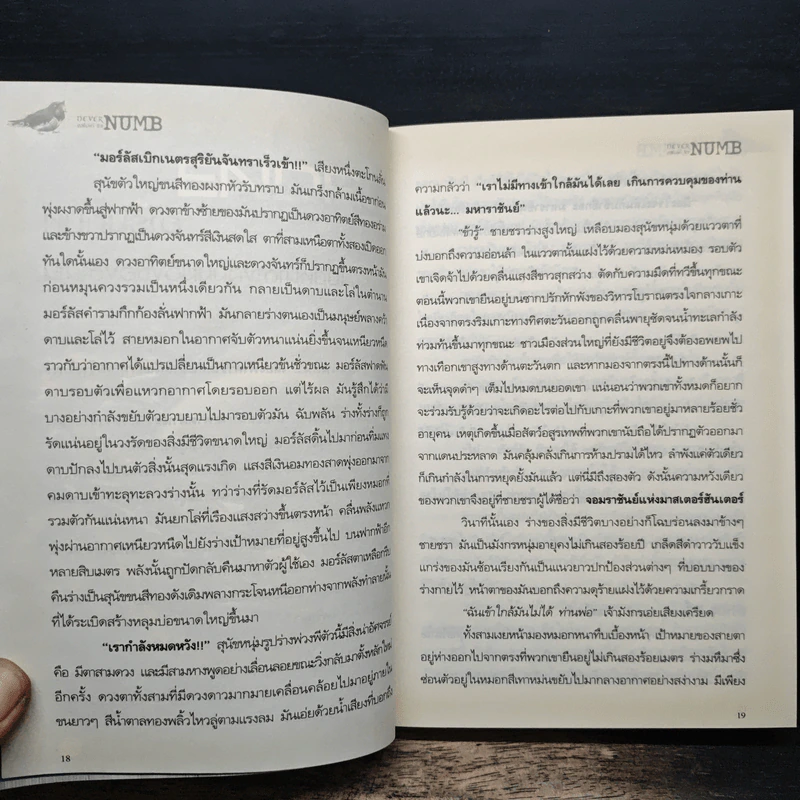 NUMB
"มอร์ลัสเบิกเนตรสุริยันจันทราเร็วเข้า!!" เสียงหนึ่งตะโกนลั่น
สุนัขตัวใหญ่ขนสีทองผงกหัวรับทราบ มันเกร็งกล้ามเนื้อขาก่อน
พุ่งผงาดขึ้นสู่ฟากฟ้า ดวงตาข้างซ้ายของมันปรากฏเป็นดวงอาทิตย์สีทองอร่าม
และข้างขวาปรากฏเป็นดวงจันทร์สีเงินสดใส ตาที่สามเหนือตาทั้งสองเปิดออก
ทันใดนั้นเอง ดวงอาทิตย์ขนาดใหญ่และดวงจันทร์ก็ปรากฏขึ้นตรงหน้ามัน
ก่อนหมุนควงรวมเป็นหนึ่งเดียวกัน กลายเป็นดาบและโล่ในตำนาน
มอร์ลัสคำรามกึกก้องลั่นฟากฟ้า มันกลายร่างตนเองเป็นมนุษย์พลางคว้า
ดาบและโล่ไว้ สายหมอกในอากาศจับตัวหนาแน่นยิ่งขึ้นจนเหนียวหนืด
ราวกับว่าอากาศได้แปรเปลี่ยนเป็นกาวเหนียวข้นชั่วขณะ มอร์ลัสฟาดฟัน
ดาบรอบตัวเพื่อแหวกอากาศโดยรอบออก แต่ไร้ผล มันรู้สึกได้ว่ามี
บางอย่างกำลังขยับตัวยวบยาบไปมารอบตัวมัน ฉับพลัน ร่างทั้งร่างก็ถูก
รัดแน่นอยู่ในวงรัดของสิ่งมีชีวิตขนาดใหญ่ มอร์ลัสดิ้นไปมาก่อนทิ่มแทง
ดาบปักลงไปบนตัวสิ่งนั้นสุดแรงเกิด แสงสีเงินอมทองสาดพุ่งออกมาจาก
คมดาบเข้าทะลุทะลวงร่างนั้น ทว่าร่างที่รัดมอร์ลัสไว้เป็นเพียงหมอกที่
รวมตัวกันแน่นหนา มันยกโล่ที่เรืองแสงสว่างขึ้นตรงหน้า คลื่นพลังแหวก
พุ่งผ่านอากาศเหนียวหนืดไปยังร่างเป้าหมายที่อยู่สูงขึ้นไป บนฟากฟ้าอีก
หลายสิบเมตร พลังนั้นถูกปัดกลับคืนมาหาตัวผู้ใช้เอง มอร์ลัสตาเหลือกรีบ
คืนร่างเป็นสุนัขขนสีทองดังเดิมพลางกระโจนหนีออกห่างจากพลังทำลายนั้น
ที่ได้ระเบิดสร้างหลุมบ่อขนาดใหญ่ขึ้นมา
"เรากำลังหมดหวัง!!" สุนัขหนุ่มรูปร่างพ่วงพีตัวนี้มีสิ่งน่าอัศจรรย์
คือ มีตาสามดวง และมีสามหางพูดอย่างเลื่อนลอยขณะวิ่งกลับมาตั้งหลักใหม่
อีกครั้ง ดวงตาทั้งสามที่มีดวงดาวมากมายเคลื่อนคล้อยไปมาอยู่ภายใน
ขนยาวๆ สีน้ำตาลทองพลิ้วไหวลู่ตามแรงลม มันเอ่ยด้วยน้ำเสียงที่บอกถึง
18
NUMB
ความกลัวว่า "เราไม่มีทางเข้าใกล้มันได้เลย เกินการควบคุมของท่าน
แล้วนะ... มหาราชันย์"
"ข้ารู้" ชายชราร่างสูงใหญ่ เหลือบมองสุนัขหนุ่มด้วยแววตาที่
บ่งบอกถึงความอ่อนล้า ในแววตานั้นแฝงไว้ด้วยความหม่นหมอง รอบตัว
เขาเจิดจ้าไปด้วยคลื่นแสงสีขาวสุกสว่าง ตัดกับความมืดที่ทวีขึ้นทุกขณะ
ตอนนี้พวกเขายืนอยู่บนซากปรักหักพังของวิหารโบราณตรงใจกลางเกาะ
เนื่องจากตรงริมเกาะทางทิศตะวันออกถูกคลื่นพายุซัดจนน้ำทะเลกำลัง
ท่วมดันขึ้นมาทุกขณะ ชาวเมืองส่วนใหญ่ที่ยังมีชีวิตอยู่จึงต้องอพยพไป
ทางเทือกเขาสูงทางด้านตะวันตก และหากมองจากตรงนี้ไปทางด้านนั้นก็
จะเห็นจุดดำๆ เต็มไปหมดบนยอดเขา แน่นอนว่าพวกเขาทั้งหมดก็อยาก
จะร่วมรับรู้ด้วยว่าจะเกิดอะไรต่อไปกับเกาะที่พวกเขาอยู่มาหลายร้อยชั่ว
อายุคน เหตุเกิดขึ้นเมื่อสัตว์อสูรเทพที่พวกเขานับถือได้ปรากฏตัวออกมา
จากแดนประหลาด มันคลุ้มคลั่งเกินการห้ามปรามได้ไหว ลำพังแค่ตัวเดียว
ก็เกินกำลังในการหยุดยั้งมันแล้ว แต่นี่มีถึงสองตัว ดังนั้นความหวังเดียว
ของพวกเขาจึงอยู่ที่ชายชราผู้ได้ชื่อว่า จอมราชันย์แห่งมาสเตอร์ฮันเตอร์
วินาทีนั้นเอง ร่างของสิ่งมีชีวิตบางอย่างก็โฉบร่อนลงมาข้างๆ
ชายชรา มันเป็นมังกรหนุ่มอายุคงไม่เกินสองร้อยปี เกล็ดสีดำวาววับแข็ง
แกร่งของมันซ้อนเรียงกันเป็นแนวยาวปกป้องส่วนต่างๆ ที่บอบบางของ
ร่างกายไว้ หน้าตาของมันบ่งบอกถึงความดุร้ายแฝงไว้ด้วยความเกรี้ยวกราด
"ฉันเข้าใกล้มันไม่ได้ ท่านพ่อ" เจ้ามังกรเอ่ยเสียงเครียด
ทั้งสามเงยหน้ามองหมอกหนาทึบเบื้องหน้า เป้าหมายของสายตา
อยู่ห่างออกไปจากตรงที่พวกเขายืนอยู่ไม่เกินสองร้อยเมตร ร่างมหึมาซึ่ง
ซ่อนตัวอยู่ในหมอกสีเทาหม่นขยับไปมากลางอากาศอย่างสง่างาม มีเพียง
19